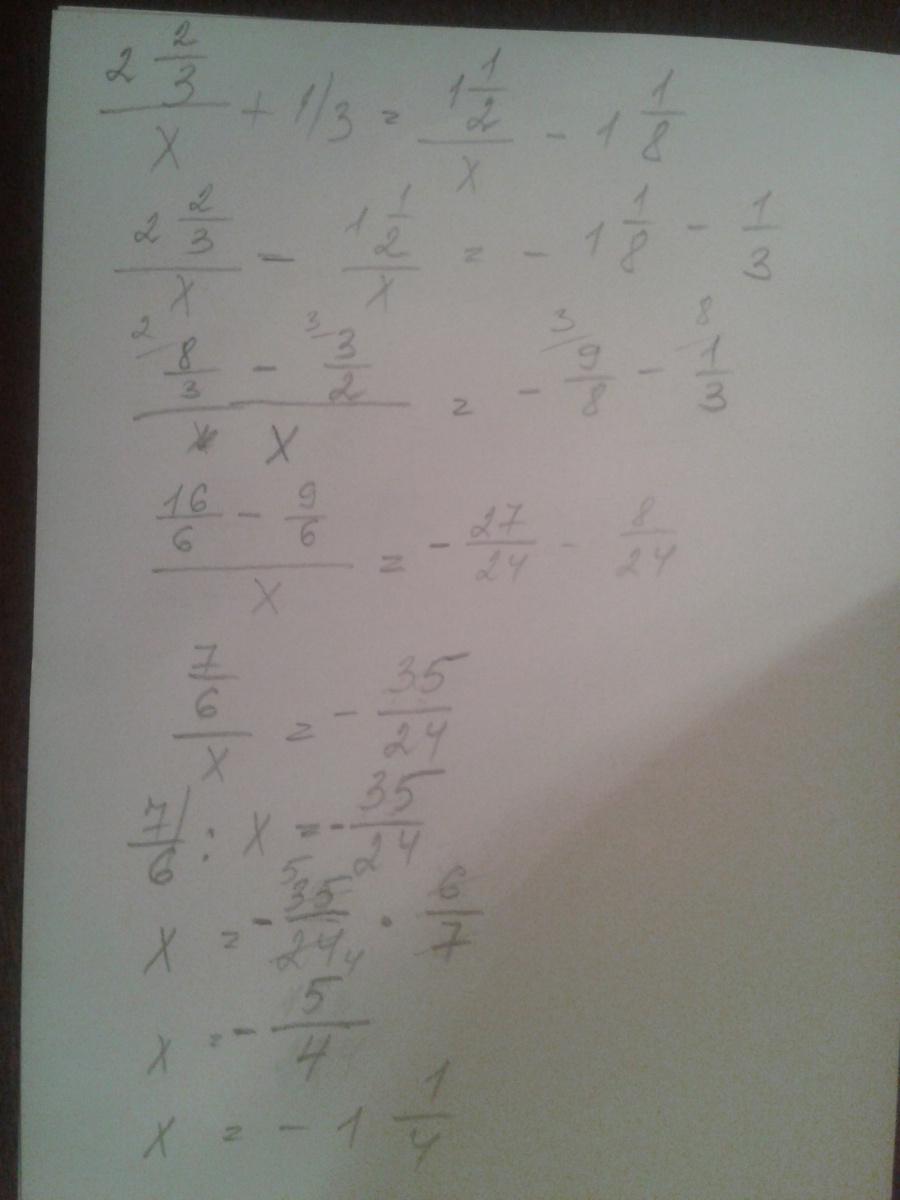 2 2/3 / x + 1/3 = 1 1/2 / x - 1 1/8
2 2/3 / x - 1 1/2 / x = - 1 1/8 - 1/3
2/ 8/3 - 3/ 3/2 / x = - 3/ 9/8 - 8/ 1/3
16/6 - 9/6 / x = - 27/24 - 8/24
7/6 / x = - 35/24
7/6 : x = - 35/24
x = - 35/24 5 4 · 6/7
x = - 5/4
x = - 1 1/4